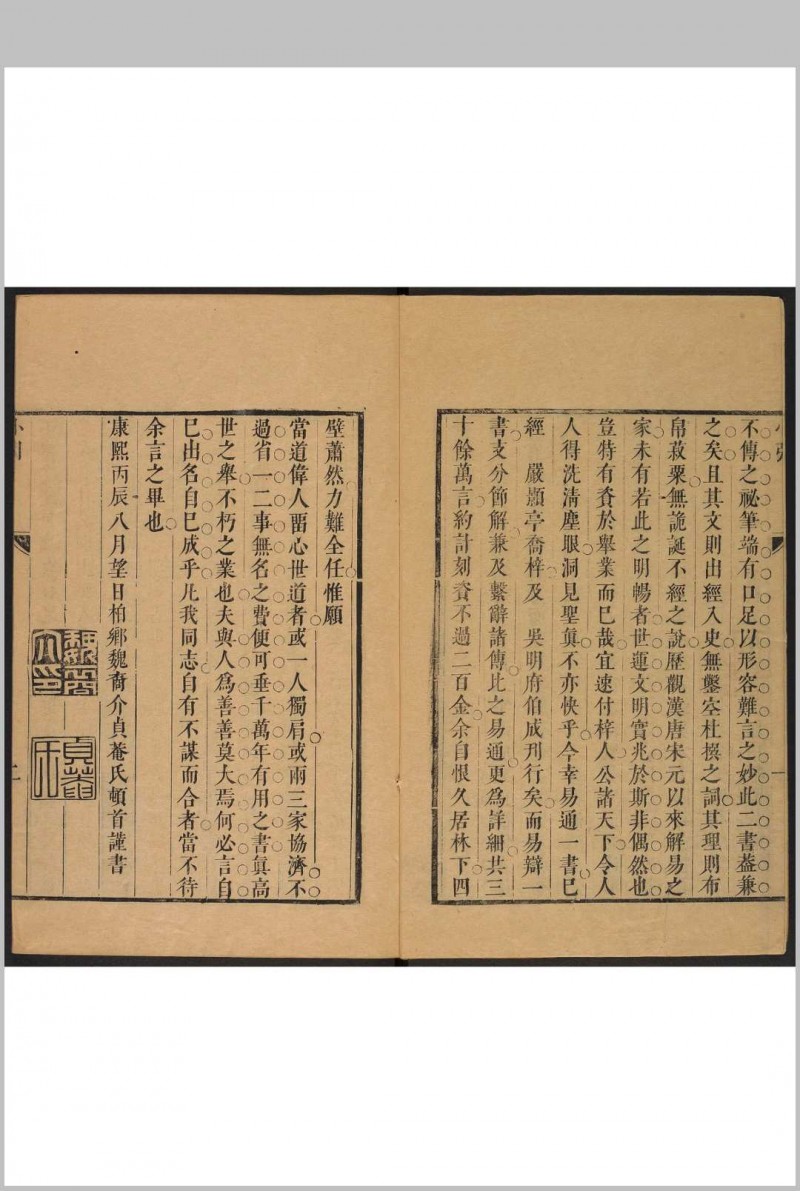 不傳之祕筆端有口足以形容難言之妙此二書葢兼
之矣且其文則出經入史無鑿空杜撰之詞其理則布
帛菽粟無詭誕不經之說歷觀漢唐宋元以來解易之
家未有若此之明暢者世運文明實兆於斯非偶然也
豈特有賚於舉業而已哉宜速付梓人公諸天下令人
人得洗淸塵眼洞見聖眞不亦快乎今幸易通一書已
經　嚴顥亭喬梓及　吳明府伯成刋行矣而易辯一
書支分節解兼及繫辭諸傳此之易通更爲詳細共三
十餘萬言約計刻賚不過二百金余自恨久居林下四
壁蕭然力難全任惟願
當道偉人畱心世道者或一人獨肩或兩三家協濟不
過省一二事無名之費便可垂千萬年有用之書眞高
世之舉不朽之業也夫與人爲善善莫大焉何必言自
已出名自已成乎凡我同志自有不謀而合者當不待
余言之畢也
康熙丙辰八月望日柏鄉魏裔介貞菴氏頓首謹書
魏裔介印
貞菴
二